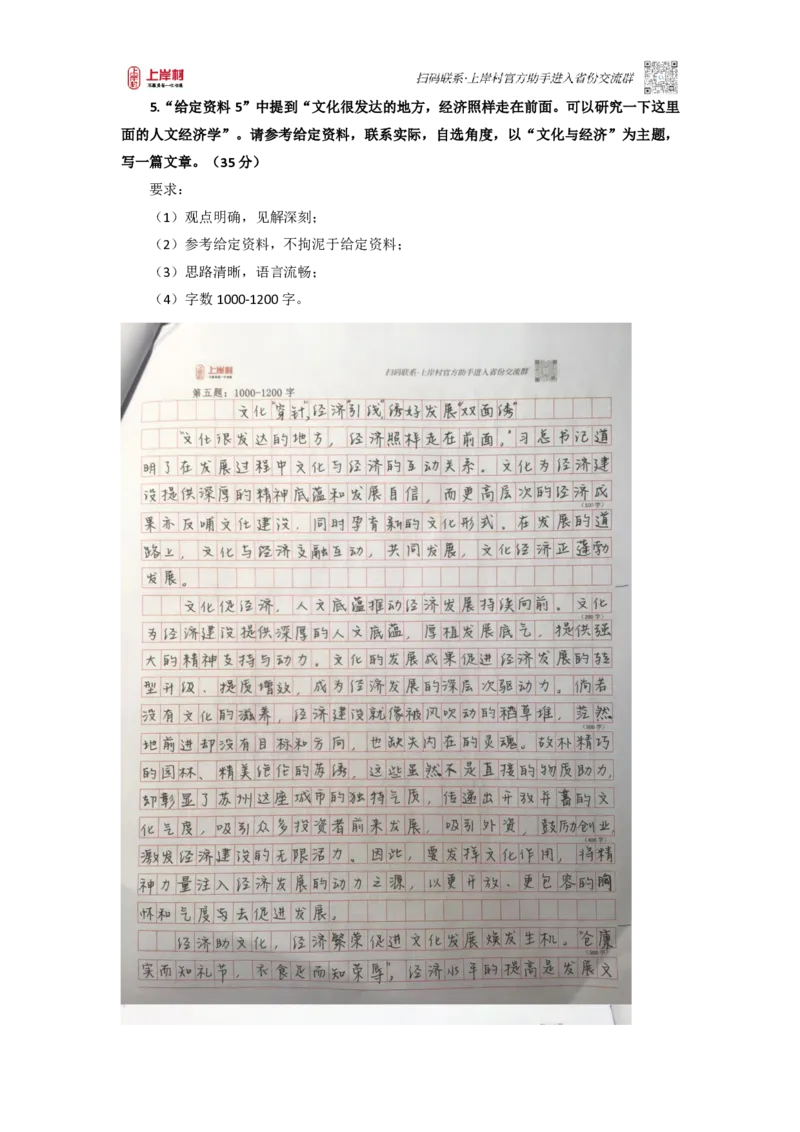 上岸村
扫码联系·上岸村官方助手进入省份交流群
5.“给定资料 5”中提到“文化很发达的地方，经济照样走在前面。可以研究一下这里
面的人文经济学”。请参考给定资料，联系实际，自选角度，以“文化与经济”为主题，
写一篇文章。（35 分）
要求：
（1）观点明确，见解深刻；
（2）参考给定资料，不拘泥于给定资料；
（3）思路清晰，语言流畅；
（4）字数 1000-1200 字。
上岸村
扫码联系·上岸村官方助手进入省份交流群
第五题：1000-1200 字
文化“穿针”，经济“引线”，绣好发展“双面绣”
“文化很发达的地方，经济照样走在前面，”习总书记道
明了在发展过程中文化与经济的互动关系。文化为经济建
设提供深厚的精神底蕴和发展自信，而更高层次的经济成
（100 字）
果亦反哺文化建设，同时孕育新的文化形式。在发展的道
路上，文化与经济交融互动，共同发展，文化经济正蓬勃
发展。
文化促经济，人文底蕴推动经济发展持续向前。文化
（200 字）
为经济建设提供深厚的人文底蕴，厚植发展底气，提供强
大的精神支持与动力。文化的发展成果促进经济发展的转
型升级、提质增效，成为经济发展的深层次驱动力。倘若
没有文化的滋养，经济建设就像被风吹动的稻草堆，茫然
（300 字）
地前进却没有目标和方向，也缺失内在的灵魂。故朴精巧
的园林、精美绝伦的苏绣，这些虽然不是直接的物质助力，
却彰显了苏州这座城市的独特气质，传递出开放并蓄的文
化气度，吸引众多投资者前来发展，吸引外资，鼓励创业，
（400 字）
激发经济建设的无限活力。因此，要发挥文化作用，将精
神力量注入经济发展的动力之源，以更开放、更包容的胸
怀和气度与去促进发展。
经济助文化，经济繁荣促进文化发展焕发生机。“仓廪
（500 字）
实而知礼节，衣食足而知荣辱”，经济水平的提高是发展文